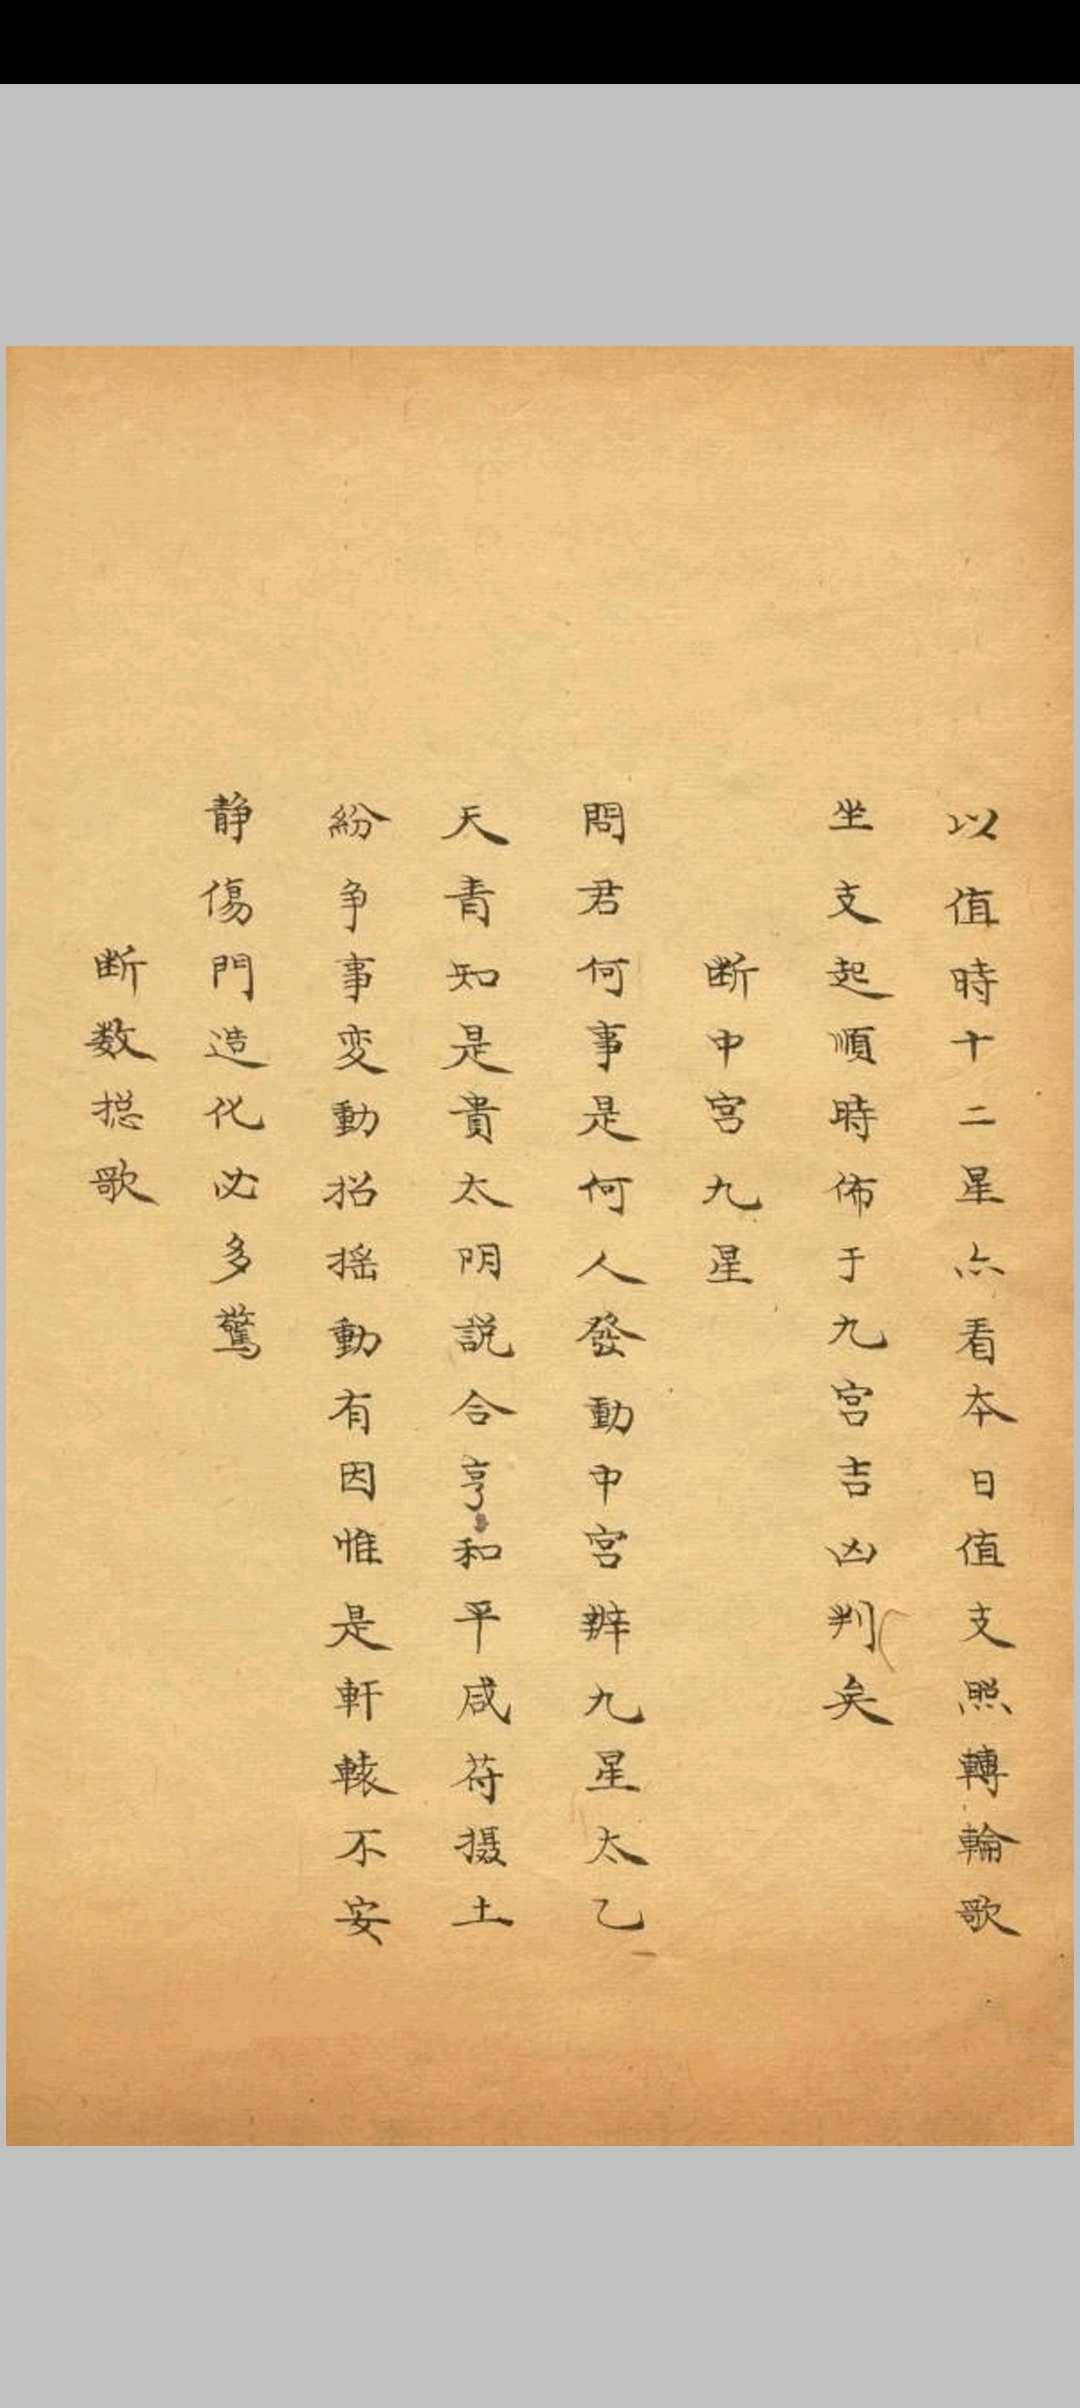 以值時十二星亦看本日值支照轉輪歌
坐支起順時佈于九宮吉凶判矣
断中宮九星
問君何事是何人發動中宮辨九星太乙
天青知是貴太阴説合亨和平咸符摄土
紛争事变動招摇動有因惟是軒轅不安
静傷門造化必多驚
断数捴歌